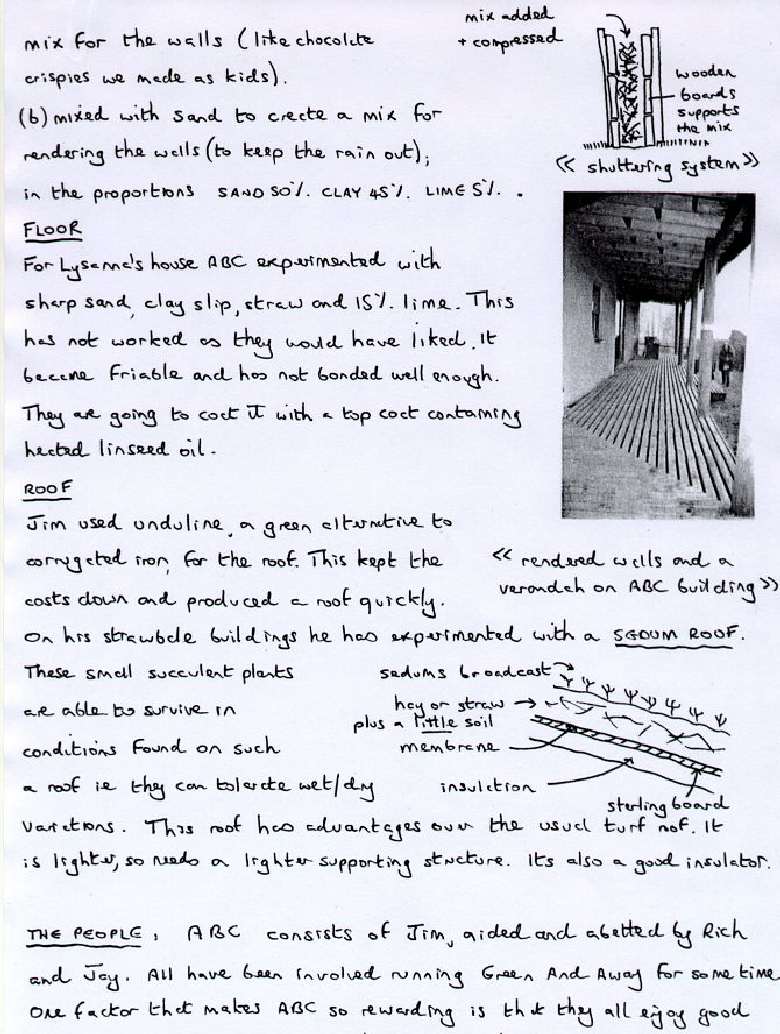 mix for the walls (like chocolate
crispies we made as kids).
(b) mixed with sand to create a mix for
rendering the walls (to keep the rain out);
in the proportions SAND 50%. CLAY 45%. LIME 5%. .
mix added
+ compressed
wooden
boards
supports
the mix
<< shuttering system >>
FLOOR
For Lysanne's house ABC experimented with
sharp sand, clay slip, straw and 15%. lime. This
has not worked as they would have liked, it
became friable and has not bonded well enough.
They are going to coat it with a top coat containing
heated linseed oil.
ROOF
Jim used unduline, a green alternative to
corrugated iron, for the roof. This kept the
costs down and produced a roof quickly.
<< rendered walls and a
verandah on ABC building >>
On his strawbale buildings he has experimented with a SEDUM ROOF.
These small succulent plants
are able to survive in
conditions found on such
a roof ie they can tolerate wet/dry
variations. This roof has advantages over the usual turf roof. It
is lighter, so needs a lighter supporting structure. Its also a good insulator.
sedums broadcast
hay or straw
plus a little soil
membrane
insulation
sterling board
THE PEOPLE, ABC consists of Jim, aided and abetted by Rich
and Jay. All have been involved running Green And Away for some time.
One factor that makes ABC so rewarding is that they all enjoy good